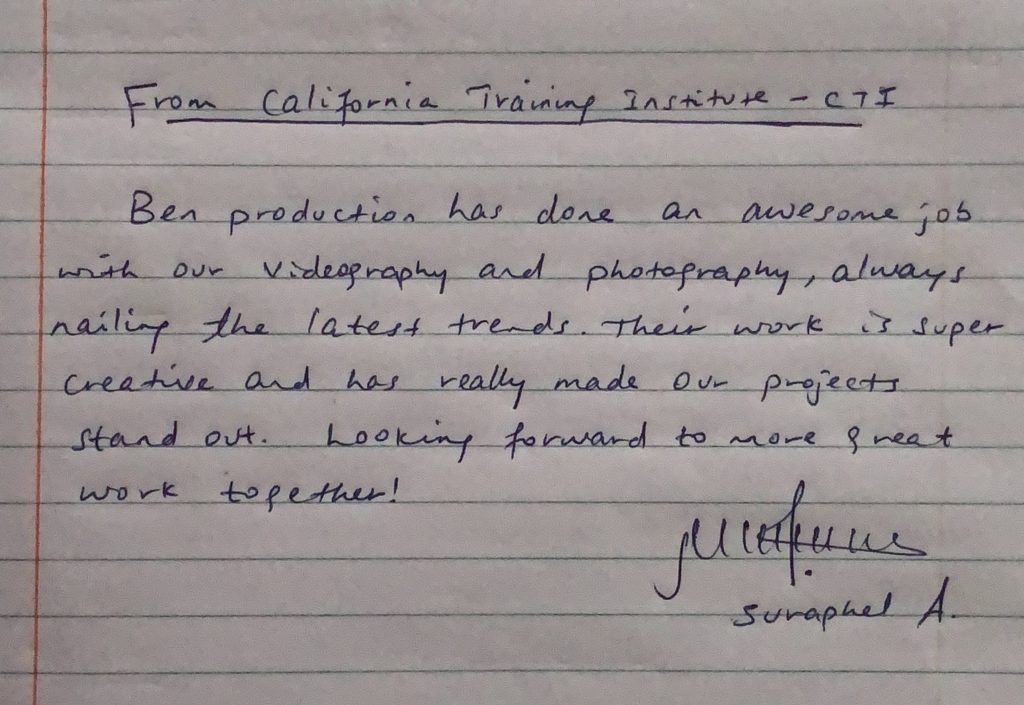 From California Training Institute - CTI
Ben production has done an awesome job
with our videography and photography, always
nailing the latest trends. Their work is super
creative and has really made our projects
stand out. Looking forward to more great
work together!
Suraphel A.